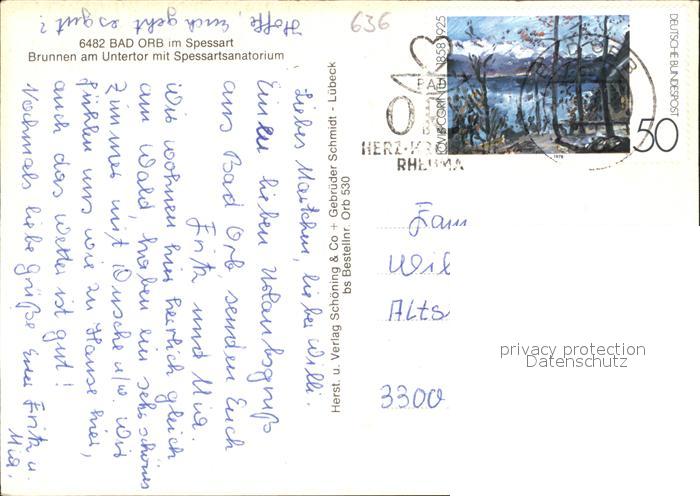 Hoffe, Euch geht es gut?
636
6482 BAD ORB im Spessart
Brunnen am Untertor mit Spessartsanatorium
Liebes Martchen, lieber Willi.
Einen lieben Urlaubsgruß
aus Bad Orb, senden Euch
Fritz und Mia.
Wir wohnen hier herrlich gleich
am Wald, haben ein sehr schönes
Zimmer mit Dusche u/w. Wir
fühlen uns wie zu Hause hier,
auch das Wetter ist gut!
Nochmals liebe Grüße Eure Fritz u.
Mia.
Herst. u. Verlag Schöning & Co + Gebrüder Schmidt - Lübeck
bs Bestellnr. Orb 530
BAD
HERZ-KR
RHEUMA
LOVIS CORINTH 1858-1925
DEUTSCHE BUNDESPOST
50
1978
Fam
Wil
Alts
3300
privacy protection
Datenschutz